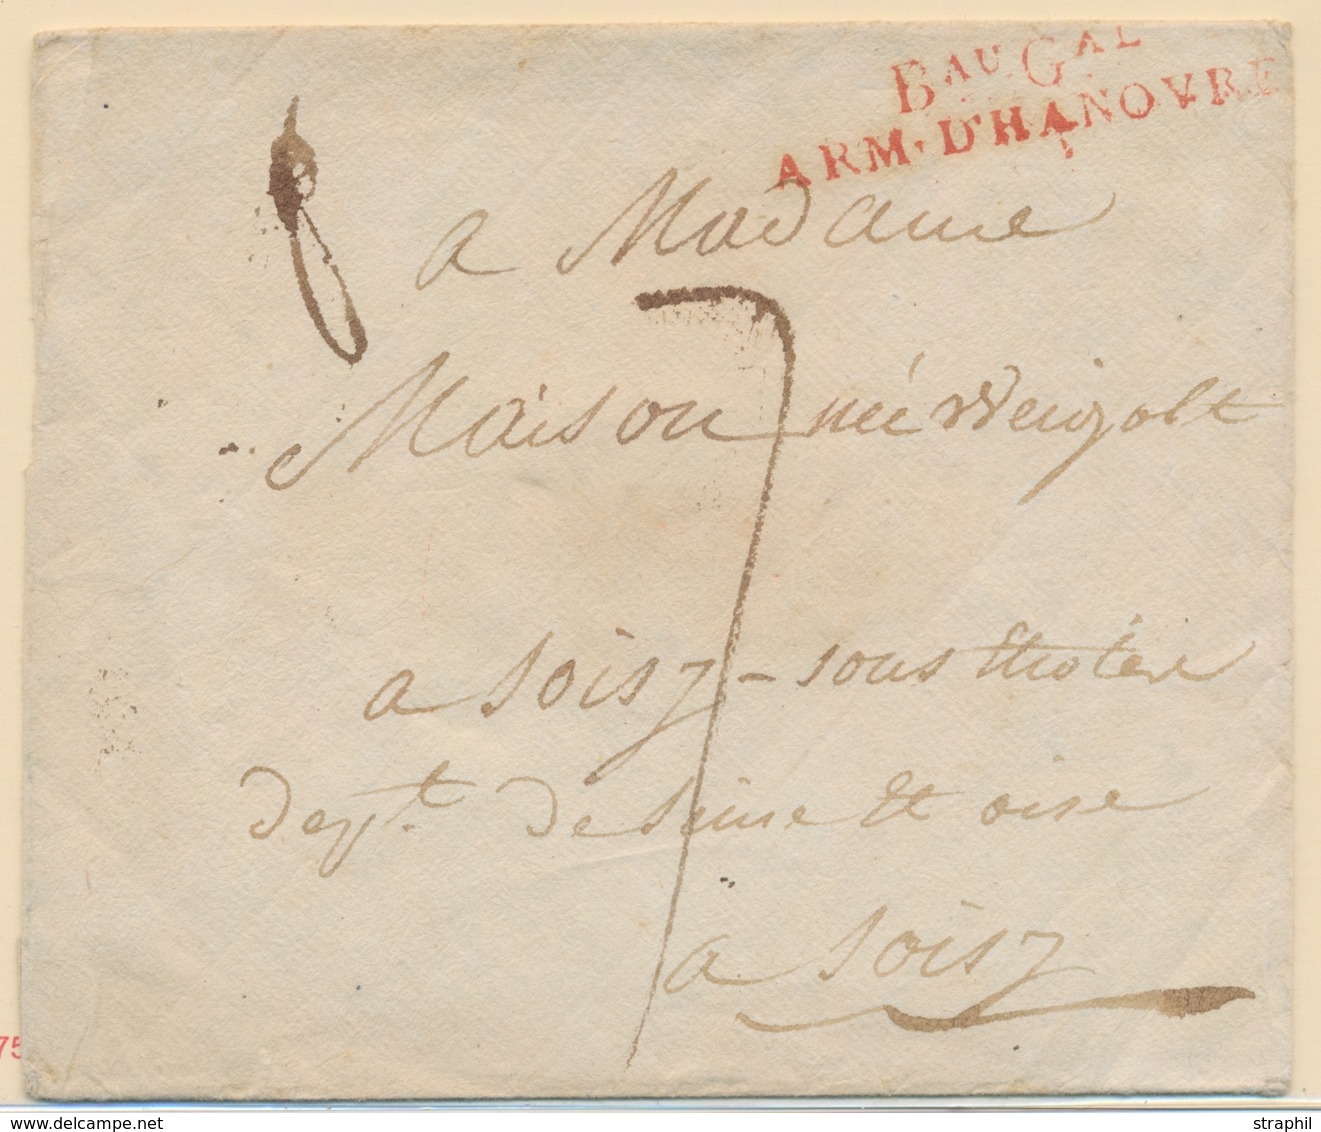 BAU GAL
ARM. D'HANOVRE
a Madame
7
Maison née Weigolt
a Soisy - sous Etiolese
dept. de seine et oise
a Soisy
75
www.delcampe.net
straphil